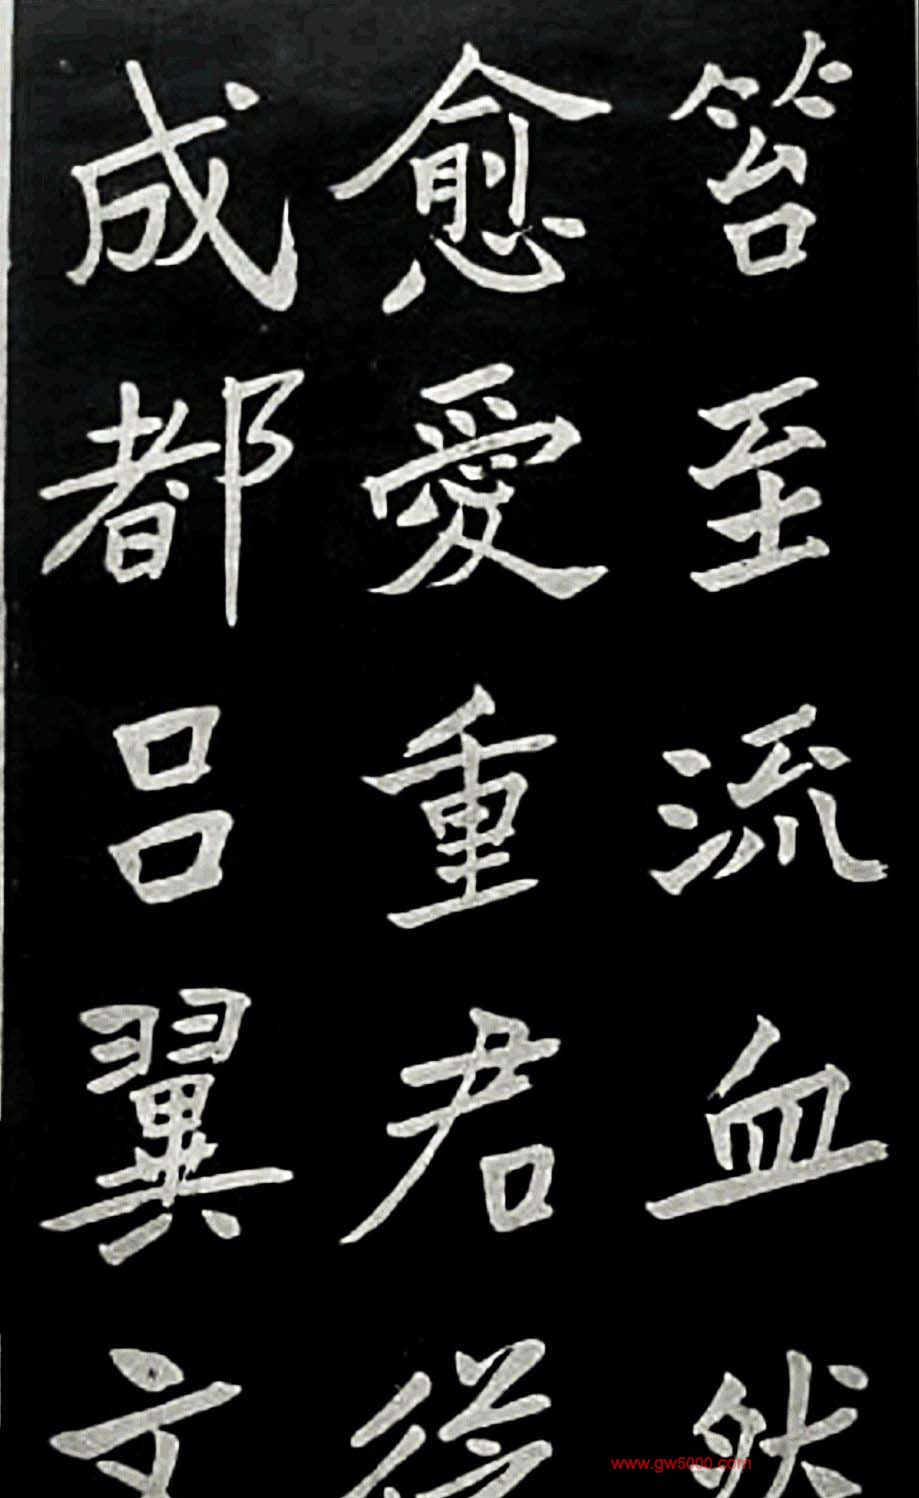 笞至流血然
愈愛重君後
成都呂翼文
www.gw5000.com